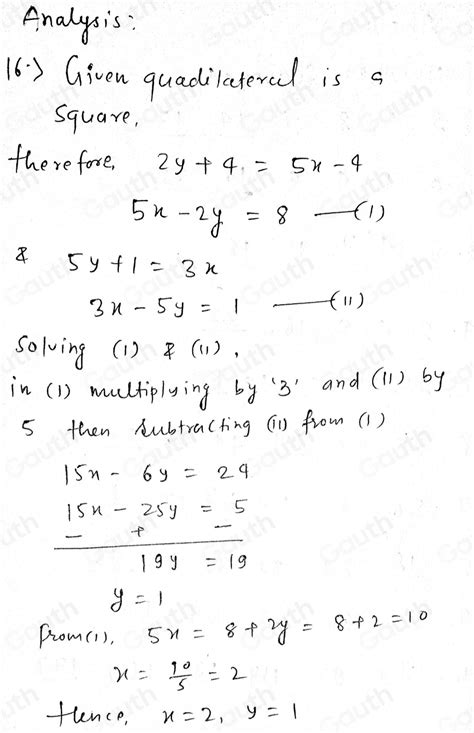 Analysis:
16.) Given quadilateral is a
square,
therefore, 2y + 4 = 5x - 4
5x - 2y = 8 —(1)
& 5y + 1 = 3x
3x - 5y = 1 —(11)
Solving (1) & (11),
in (1) multiplying by '3' and (11) by
5 then subtracting (11) from (1)
15x - 6y = 24
15x - 25y = 5
- + -
19y = 19
y = 1
from(1), 5x = 8 + 2y = 8 + 2 = 10
x = 10/5 = 2
Hence, x = 2, y = 1